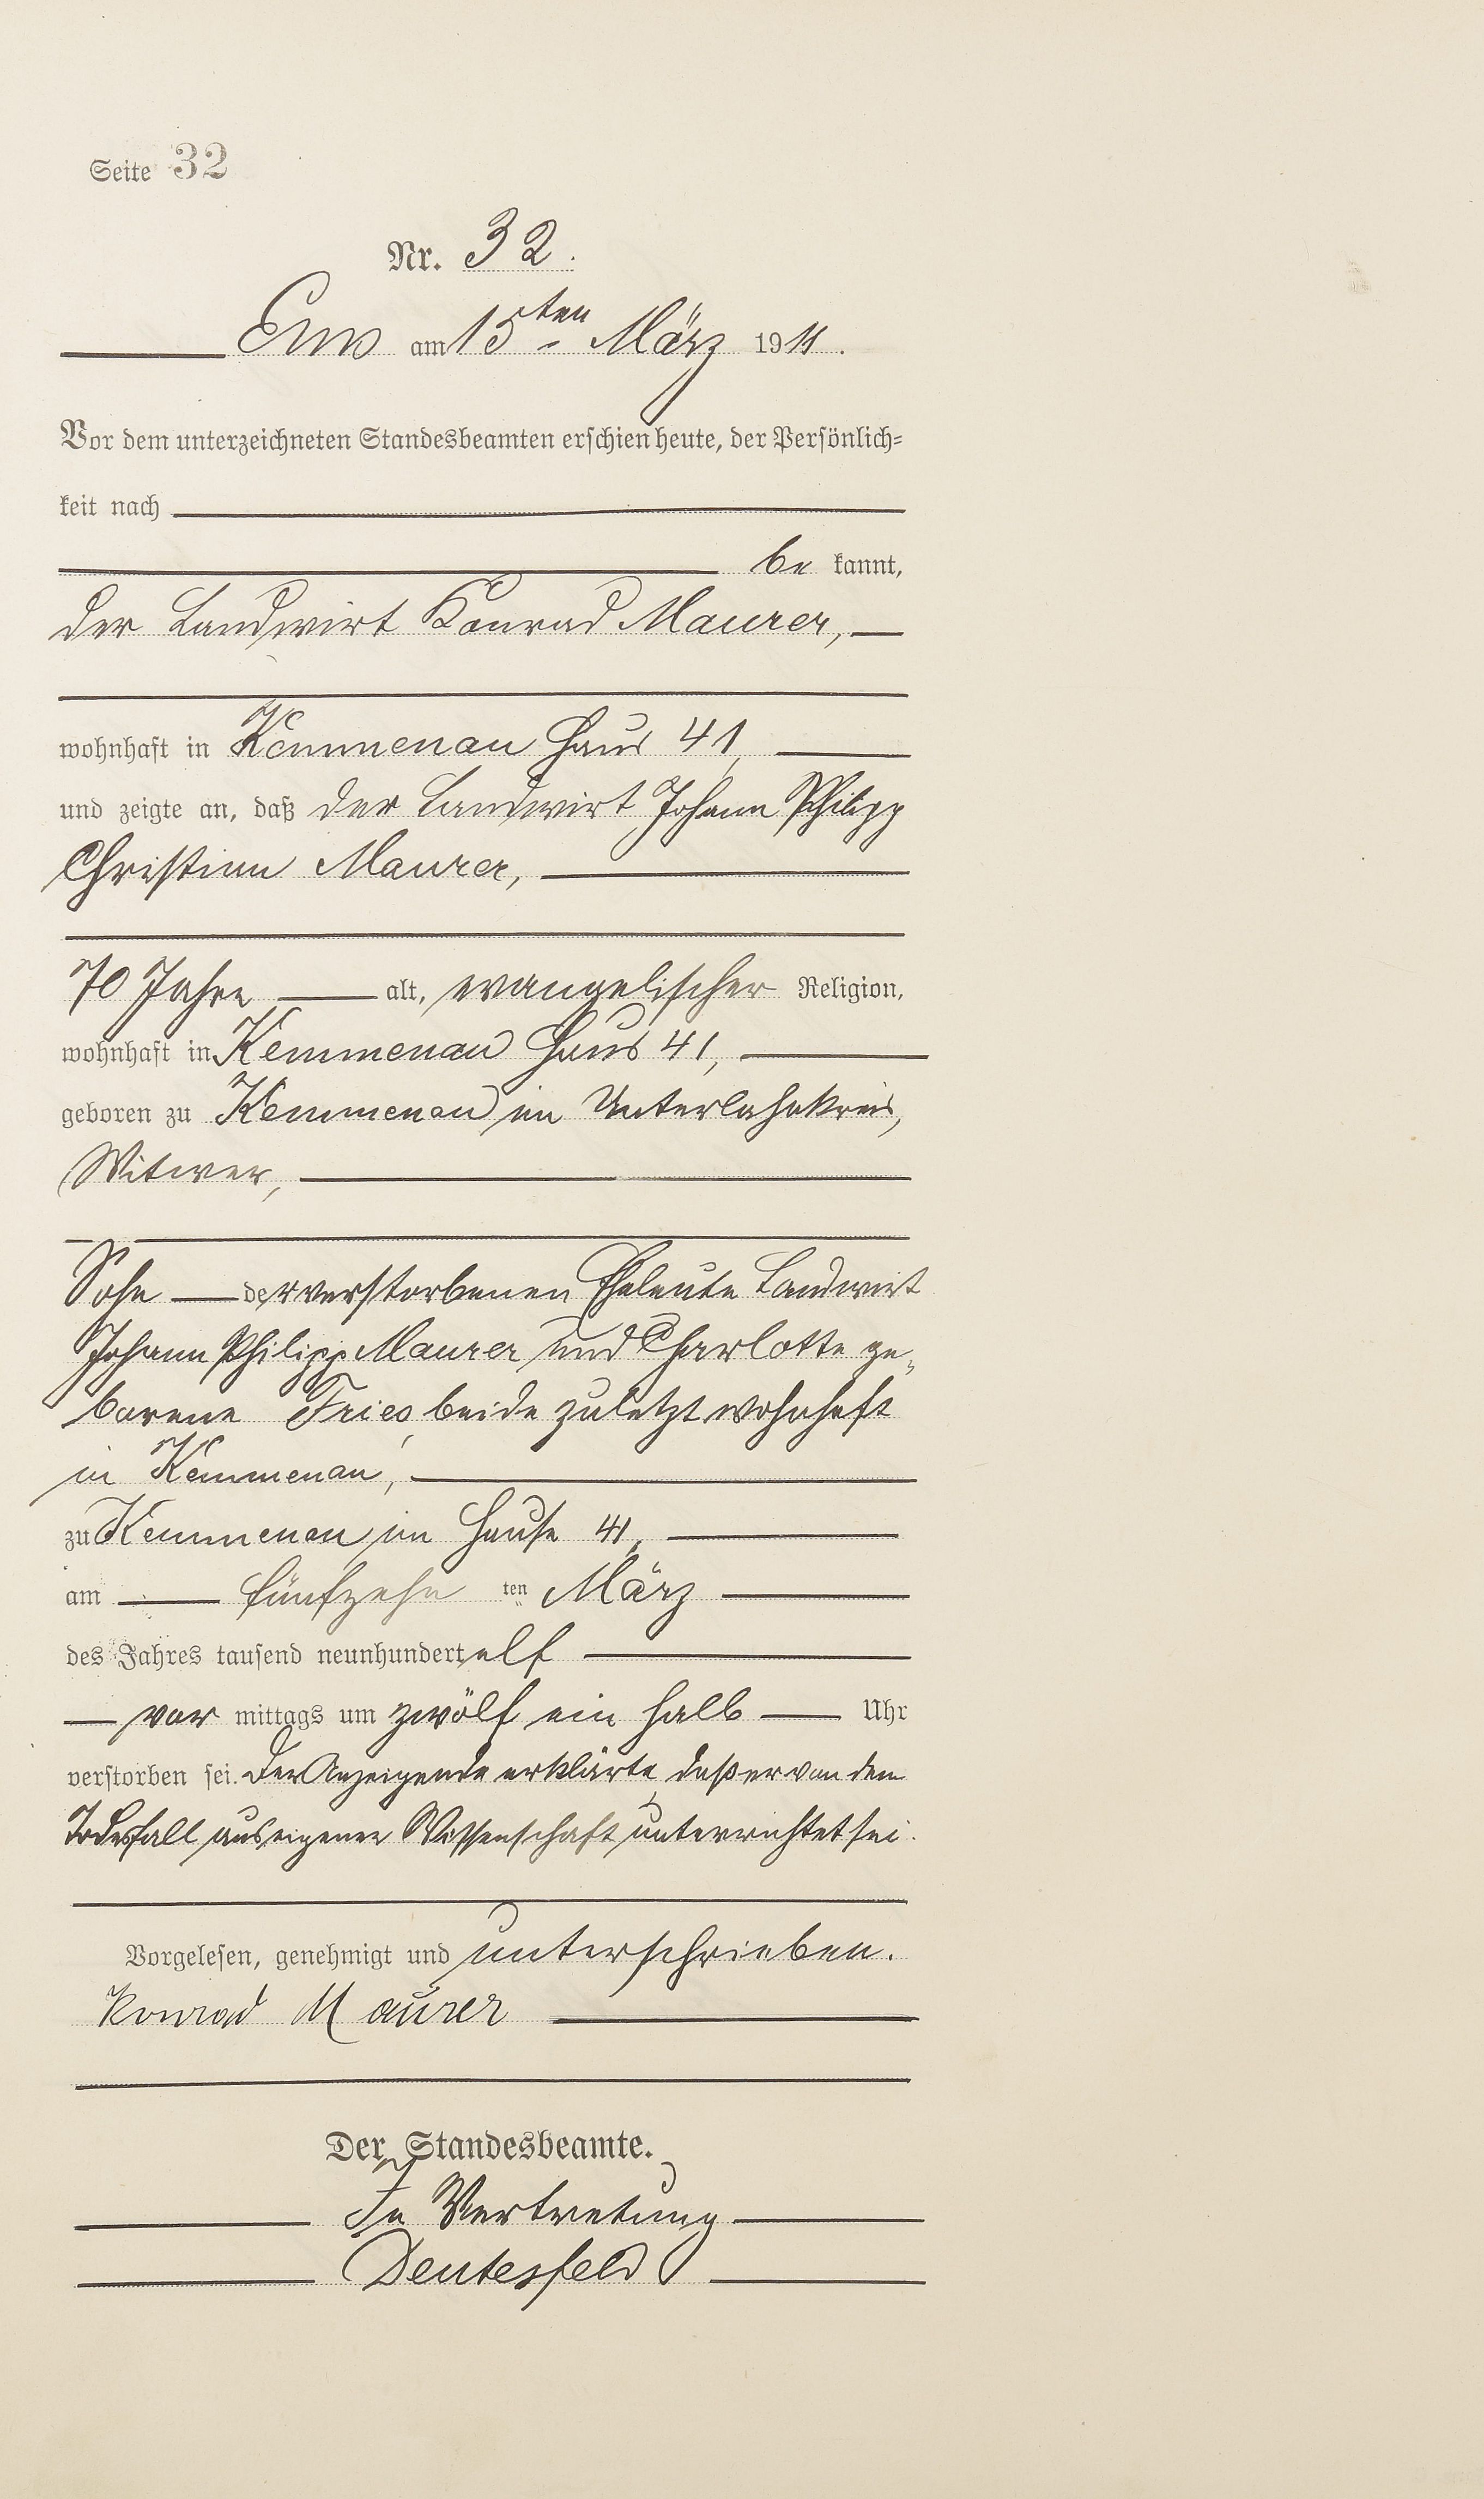 Seite 32
Nr. 32.
Ems am 15ten März 1911.
Vor dem unterzeichneten Standesbeamten erschien heute, der Persönlich=
keit nach
be kannt,
der Landwirt Konrad Maurer,
wohnhaft in Kemmenau Haus 41,
und zeigte an, daß der Landwirt Johann Philipp
Christian Maurer,
70 Jahre alt, evangelischer Religion,
wohnhaft in Kemmenau Haus 41,
geboren zu Kemmenau im Unterlahnkreis,
Witwer,
Sohn der verstorbenen Eheleute Landwirt
Johann Philipp Maurer und Charlotte ge=
borene Fries, beide zuletzt wohnhaft
in Kemmenau,
zu Kemmenau im Hause 41,
am fünfzehn ten März
des Jahres tausend neunhundert elf
vor mittags um zwölf ein halb Uhr
verstorben sei. Der Anzeigende erklärte, daß er von dem
Todesfall aus eigener Wissenschaft unterrichtet sei.
Vorgelesen, genehmigt und unterschrieben.
Konrad Maurer
Der Standesbeamte.
In Vertretung
Deutesfeld